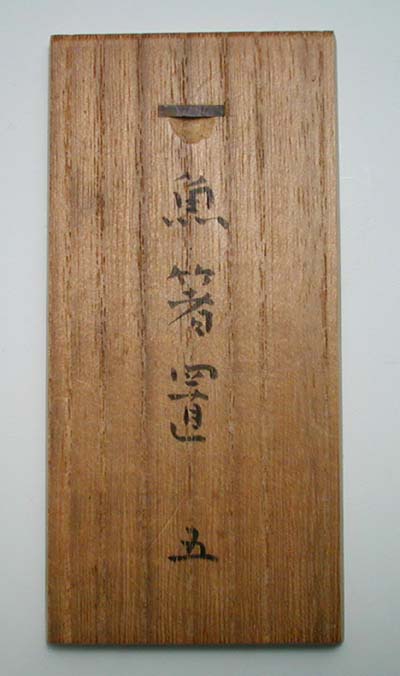 魚箸置 五